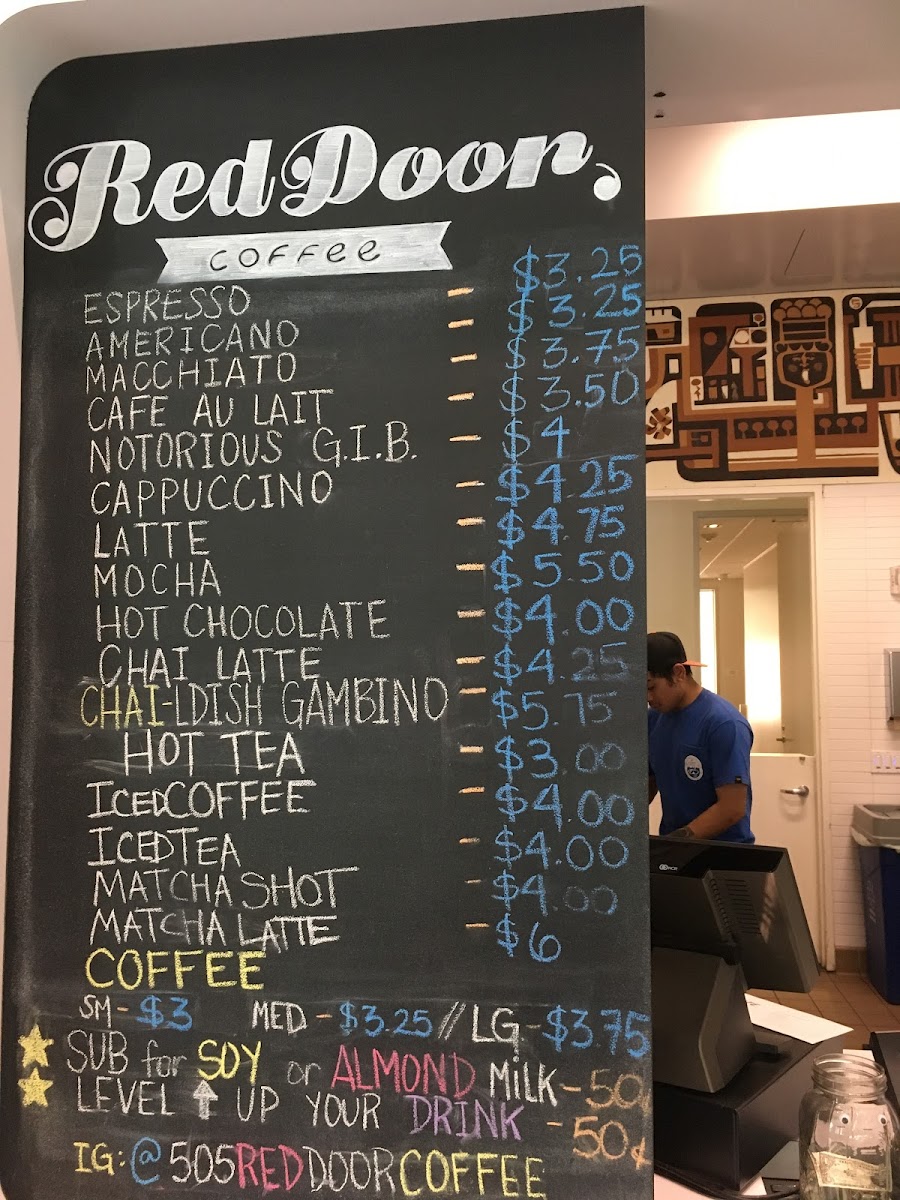 Red Door
COFFEE
ESPRESSO - $3.25
AMERICANO - $3.25
MACCHIATO - $3.75
CAFE AU LAIT - $3.50
NOTORIOUS G.I.B. - $4
CAPPUCCINO - $4.25
LATTE - $4.75
MOCHA - $5.50
HOT CHOCOLATE - $4.00
CHAI LATTE - $4.25
CHAI-LDISH GAMBINO - $5.75
HOT TEA - $3.00
ICED COFFEE - $4.00
ICED TEA - $4.00
MATCHA SHOT - $4.00
MATCHA LATTE - $6
COFFEE
SM - $3 MED - $3.25 // LG - $3.75
SUB for SOY or ALMOND MILK - 50
LEVEL UP YOUR DRINK - 50¢
IG: @505REDDOORCOFFEE